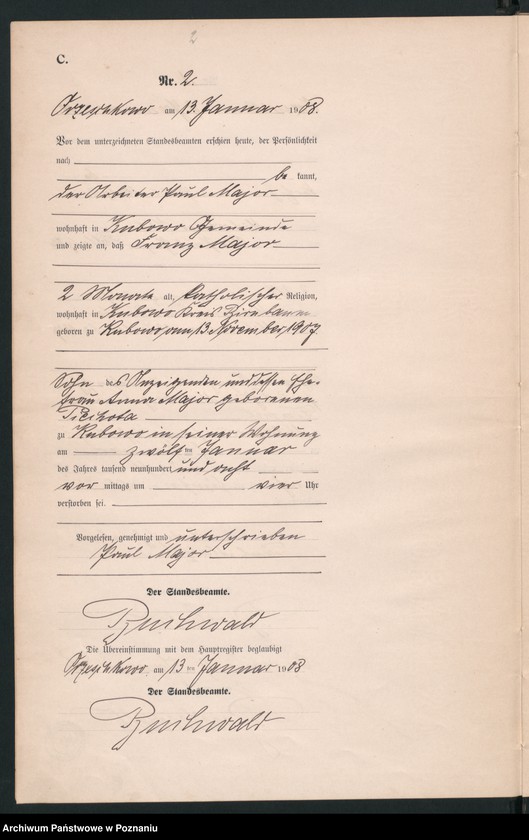 C.
Nr. 2.
am 13. Januar 1908.
Vor dem unterzeichneten Standesbeamten erschien heute, der Persönlichkeit
nach
be kannt,
der Arbeiter Paul Major
wohnhaft in Kubowo Gemeinde
und zeigte an, daß Franz Major
2 Monate alt, katholischer Religion,
wohnhaft in Kubowo Kreis Birnbaum
geboren zu Kubowo, am 13. November, 1907
Sohn des Anzeigenden und dessen Ehe-
frau Anna Major geborenen
zu Kubowo in seiner Wohnung
am zwölf ten Januar
des Jahrs tausend neunhundert und acht
vor mittags um vier Uhr
verstorben sei.
Vorgelesen, genehmigt und unterschrieben
Paul Major
Der Standesbeamte.
Buchwald
Die Übereinstimmung mit dem Hauptregister beglaubigt
am 13 ten Januar 1908
Der Standesbeamte.
Buchwald
Archiwum Państwowe w Poznaniu